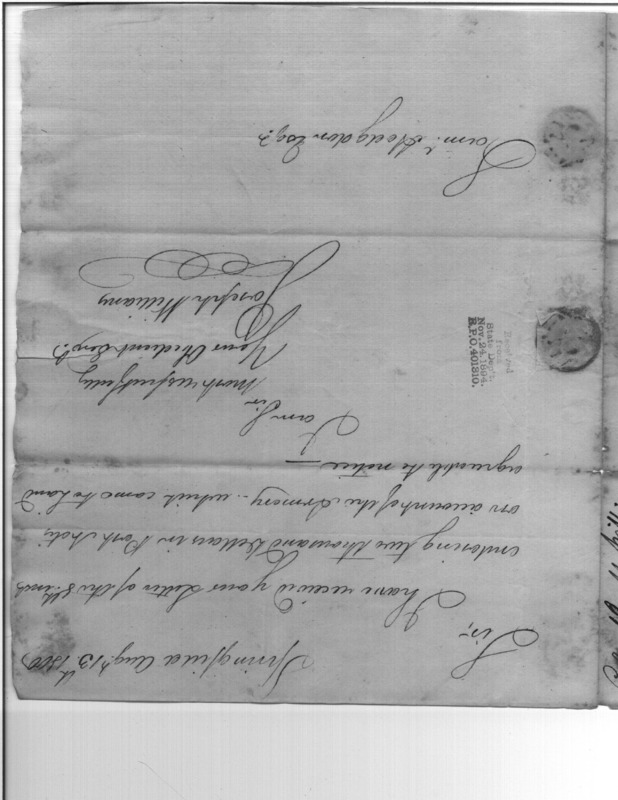 Springfield Augt. 13th 1800
Sir,
I have received your Letter of the 8th. inst
enclosing two thousand Dollars in Post Notes
on account of the Armory - which came to hand
agreeable to notice —
I am Sir
most respectfully
Your Obedient Servt.
Joseph Williams
Saml. Hodgdon Esqr.
Received
from
State Dep't.
Nov. 24, 1894.
R.P.O. 401310.